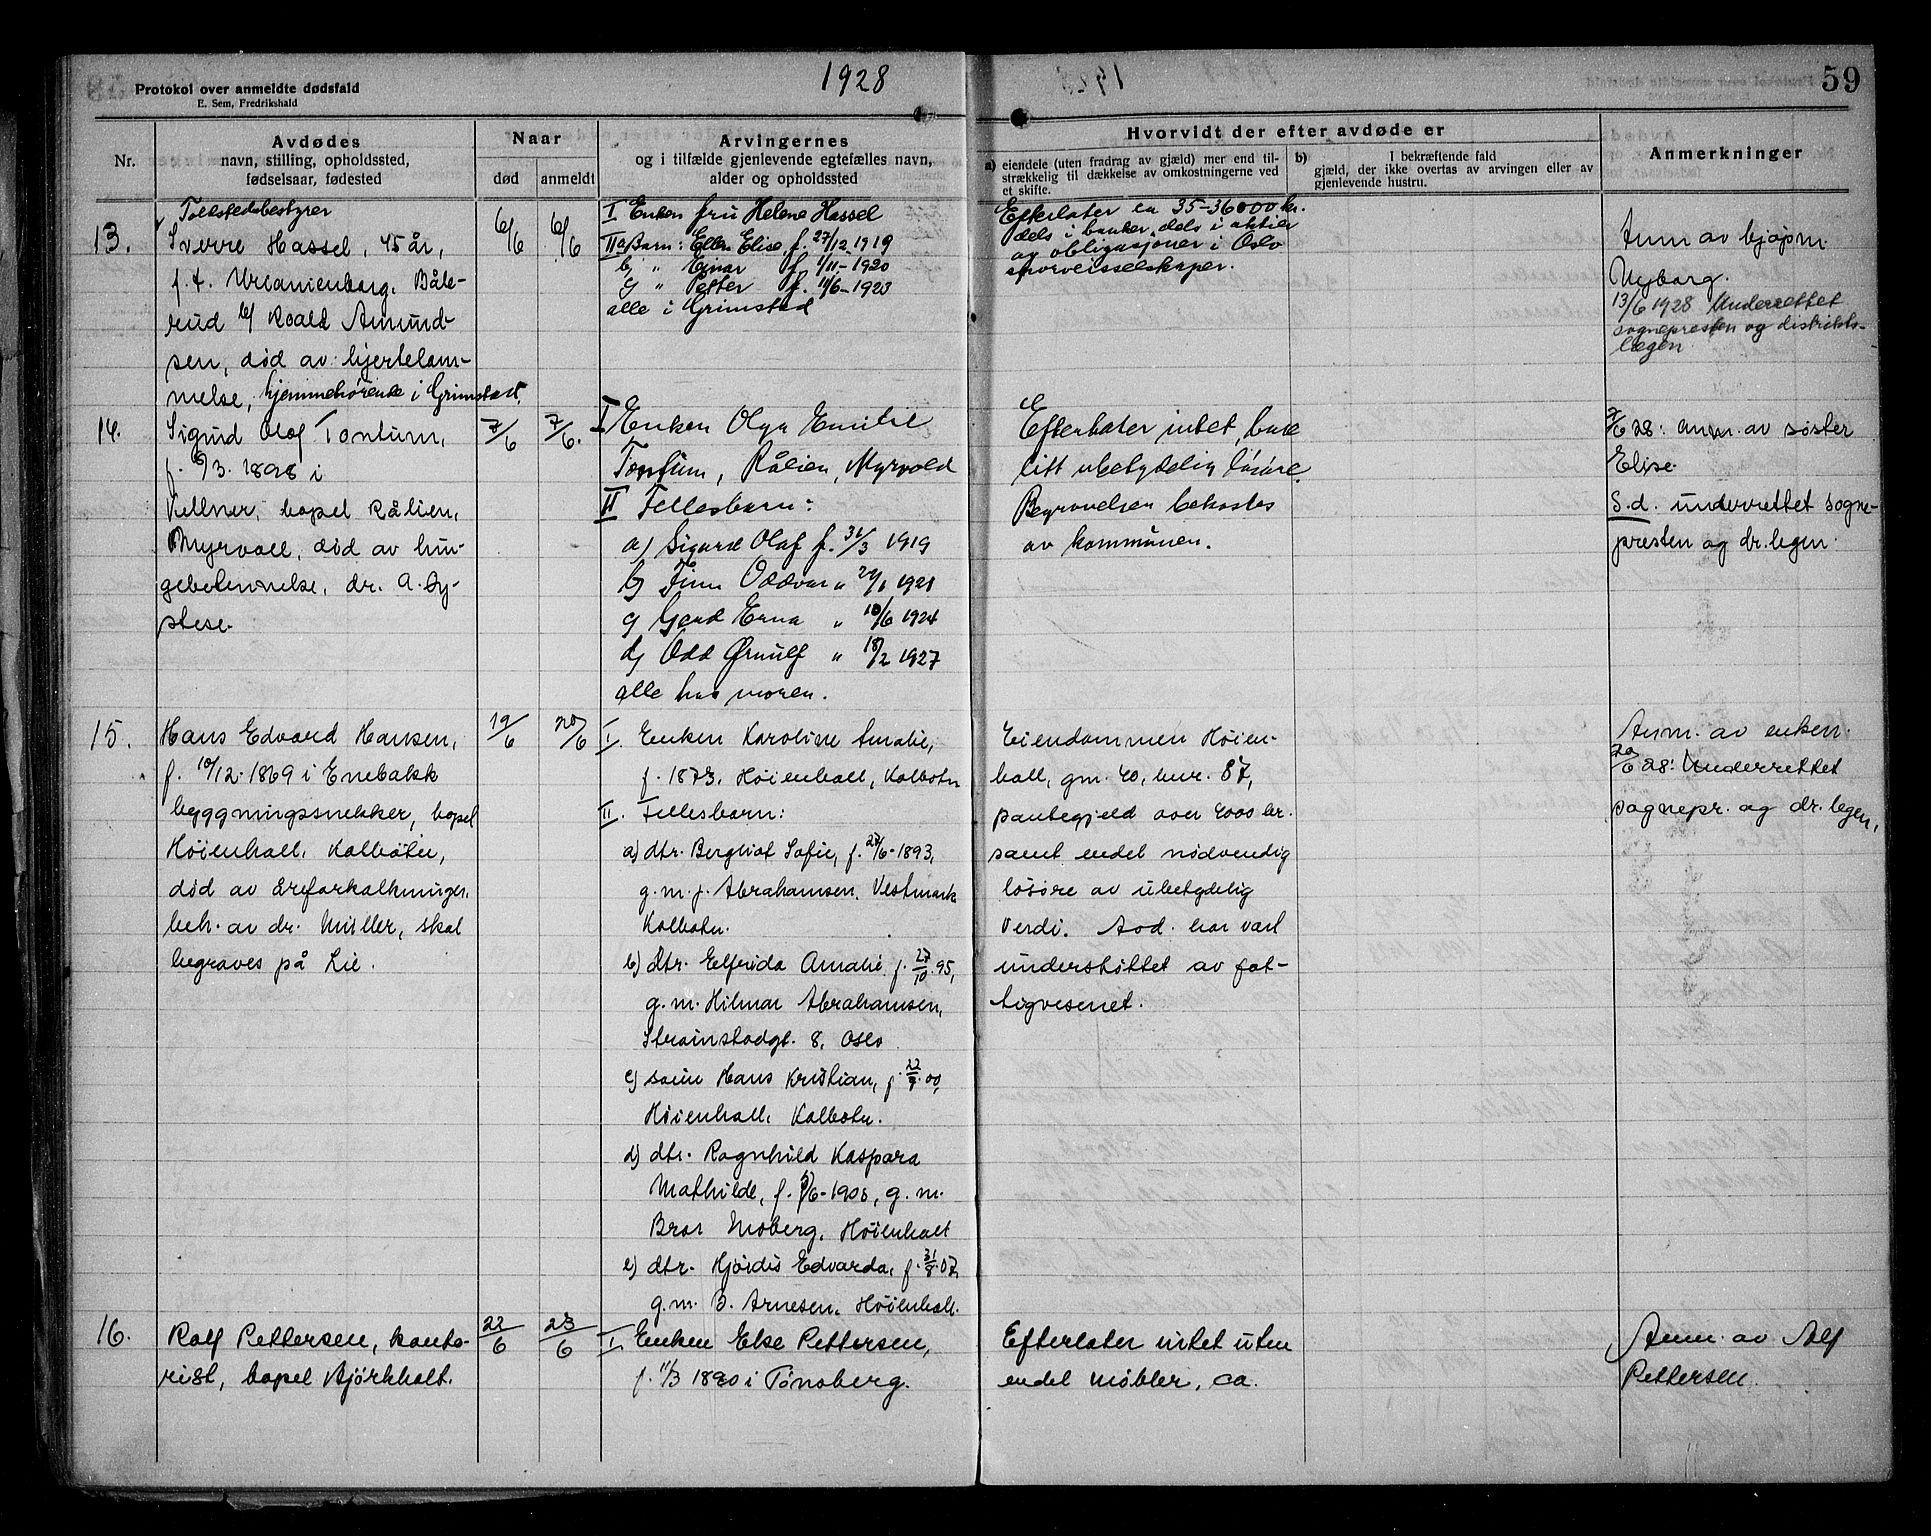 1928
59
Protokol over anmeldte dødsfald
E. Sem, Fredrikshald
Nr.
Avdødes
navn, stilling, opholdssted,
fødselsaar, fødested
Naar
død
anmeldt
Arvingernes
og i tilfælde gjenlevende egtefælles navn,
alder og opholdssted
Hvorvidt der efter avdøde er
a) eiendele (uten fradrag av gjæld) mer end til-
strækkelig til dækkelse av omkostningerne ved
et skifte.
b) I bekræftende fald
gjæld, der ikke overtas av arvingen eller av
gjenlevende hustru.
Anmerkninger
13.
Tollstedsbestyrer
Sverre Hassel, 45 år,
f. t. Uranienborg, Båle-
rud b/ Roald Amund-
sen, død av hjertelam-
melse, hjemmehørende i Grimstad.
6/6
6/6
I Enken fru Helene Hassel
II a) Barn: Ellen Elise, f. 27/12 1919
b) " Einar f. 1/11-1920
c) " Petter f. 11/6-1923
alle i Grimstad
Efterlater ca 35-36000 kr.
dels i banker, dels i aktier
og obligasjoner i Oslo
sporveisselskaper.
Anm av
Nyborg.
13/6 1928 Underrettet
sognepresten og distrikts-
lægen
14.
Sigurd Olaf Tontum,
f. 9/3. 1898 i
bopel Rålien,
Myrvoll, død av lun-
gebetennelse, dr. A. Sy-
stese.
7/6
7/6.
I Enken Olga Emilie
Tontum, Rålien, Myrvold
II Fellesbarn:
a) Sigurd Olaf f. 31/3 1919
b) Finn Oddvar " 1921
c) Gerd Erna " 10/6 1924
d) Odd Ørnulf " 18/2 1927
alle hos moren.
Efterlater intet, bare
litt ubetydelig løsøre.
Begravelsen bekostes
av kommunen.
7/6 28: anm. av søster
Elise.
S.d. underrettet sogne-
presten og dr.legen.
15.
Hans Edvard Hansen,
f. 10/12.1869 i Enebakk
byggningssnekker, bopel
Høienhall, Kolbotn,
død av åreforkalkninger,
beh. av dr. Müller, skal
begraves på Lie.
19/6
20/6
I. Enken Karoline Amalie,
f. 1873, Høienhall, Kolbotn
II. Fellesbarn:
a) dtr. Bergliot Sofie, f. 28/6-1893,
g.m. J. Abrahamsen, Vestmark
Kolbotn.
b) dtr. Elfrida Amalie f. 27/10.95,
g.m. Hilmar Abrahamsen,
8, Oslo
c) sønn Hans Kristian, f. 22/9.00,
Høienhall, Kolbotn.
d) dtr. Ragnhild Kaspara
Mathilde, f. 1905, g.m.
Bror Moberg, Høienhall
e) dtr. Hjørdis Edvarda, f. 31/8.07,
g.m. B. Arnesen, Høienhall.
Eiendommen Høien-
hall, gnr. 40, bnr. 87,
pantegjeld over 4000 kr.
samt endel nødvendig
løsøre av ubetydelig
verdi. Avd. har vært
understøttet av fat-
tigvesenet.
Anm. av enken.
20/6 28: Underrettet
sognepr. og dr. legen.
16.
Rolf Pettersen, konto-
rist, bopel Bjørkholt.
22/6
23/6
I. Enken Else Pettersen,
f. 11/3 1890 i Tønsberg.
Efterlater intet uten
endel møbler, ca.
Anm. av Alf
Pettersen.